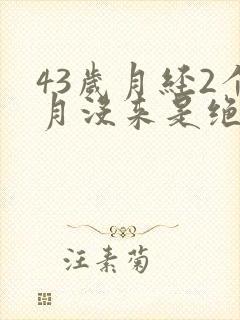 43歲月经2个
月没来是绝
汪素菊